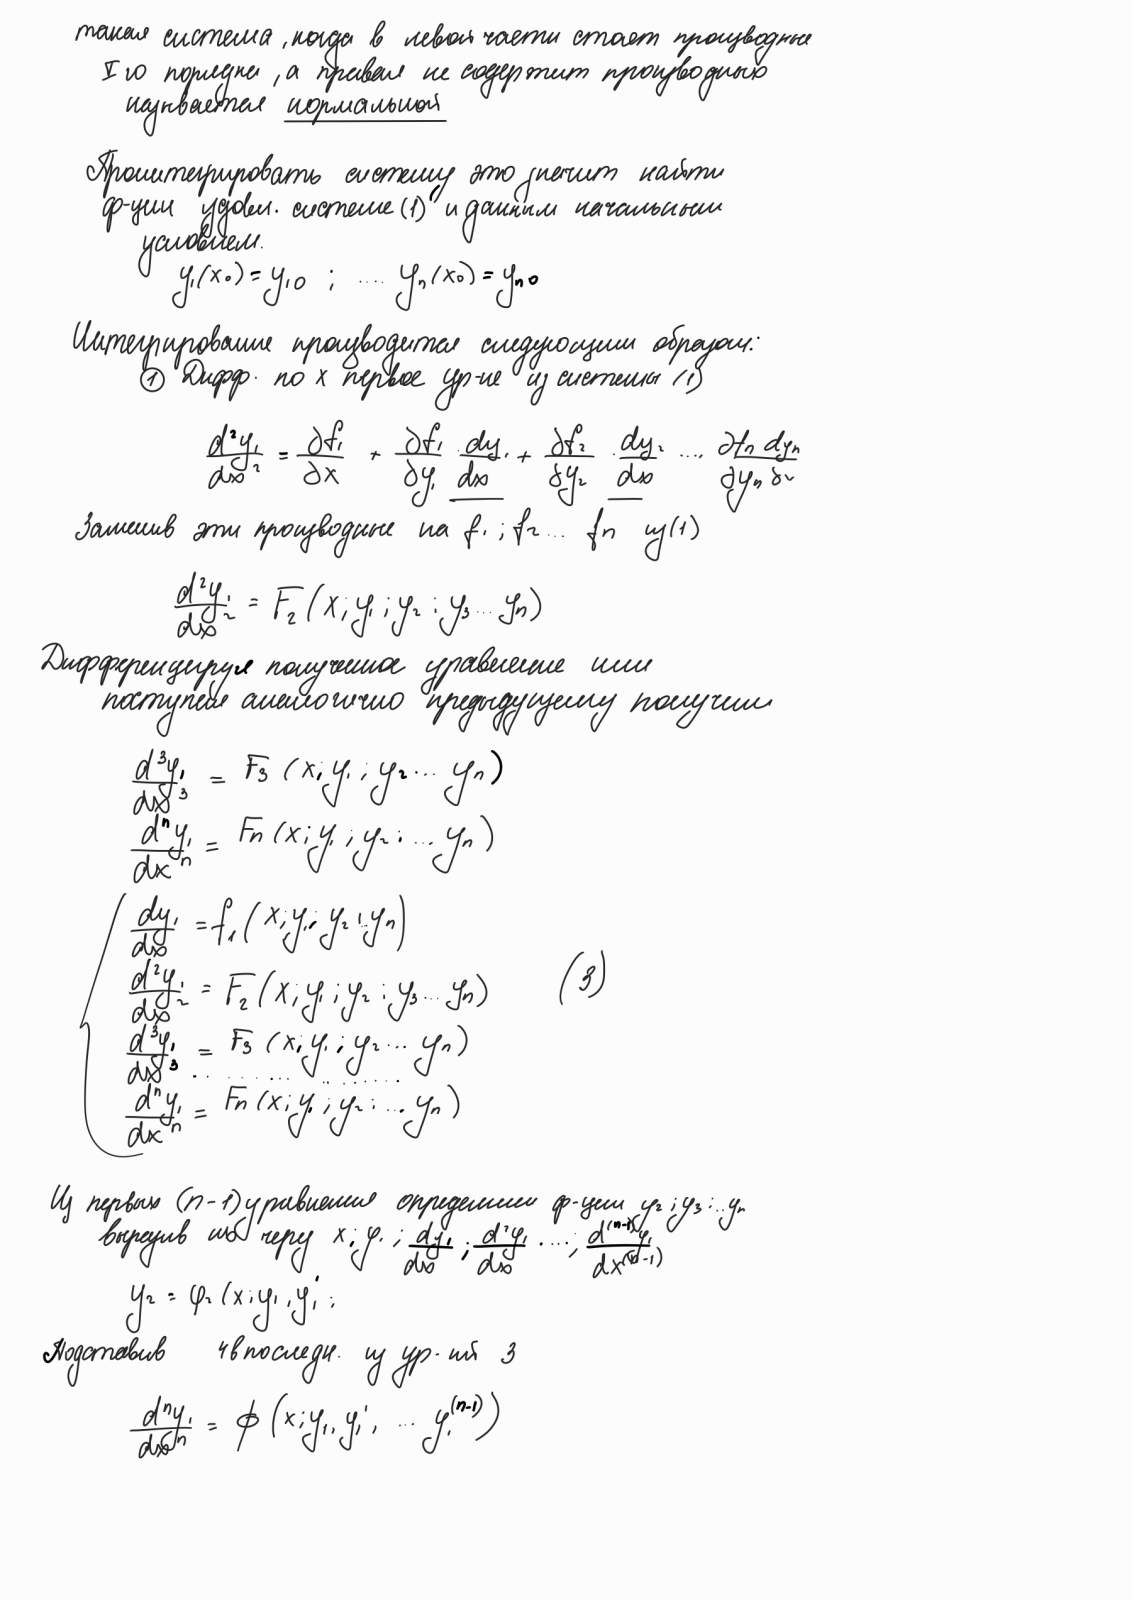 такая система, когда в левой части стоят производные
I го порядка, а правая не содержит производных
называется нормальной
Проинтегрировать систему это значит найти
ф-ции удовл. системе (1) и данным начальным
условием.
y₁(x₀) = y₁₀ ; .... yₙ(x₀) = yₙ₀
Интегрирование производится следующим образом:
① Дифф. по x первое ур-ие из системы (1)
d²y₁/dx² = ∂f₁/∂x + ∂f₁/∂y₁ · dy₁/dx + ∂f₂/∂y₂ · dy₂/dx .... ∂fₙ/∂yₙ dyₙ/
Заменив эти производные на f₁ ; f₂ ... fₙ из (1)
d²y₁/dx² = F₂ (x; y₁; y₂ ; y₃ ... yₙ)
Дифференцируя полученное уравнение или
поступая аналогично предыдущему получим
d³y₁/dx³ = F₃ (x; y₁; y₂ ... yₙ)
dⁿy₁/dxⁿ = Fₙ (x; y₁; y₂ ; ... yₙ)
dy₁/dx = f₁ (x; y₁; y₂ ; yₙ)
d²y₁/dx² = F₂ (x; y₁; y₂ ; y₃ ... yₙ) (3)
d³y₁/dx³ = F₃ (x; y₁; y₂ ... yₙ)
. . . . . . . . . . . . . . .
dⁿy₁/dxⁿ = Fₙ (x; y₁; y₂ ; ... yₙ)
Из первых (n-1) уравнения определим ф-ции y₂; y₃ ; .. yₙ
выразив их через x; y₁ ; dy₁/dx ; d²y₁/dx ...; d⁽ⁿ⁻¹⁾y₁/dx⁽ⁿ⁻¹⁾
y₂ = φ₂ (x; y₁, y₁' ;
Подставив 4 в последн. из ур-ий 3
dⁿy₁/dxⁿ = ϕ (x; y₁, y₁', ... y₁⁽ⁿ⁻¹⁾)